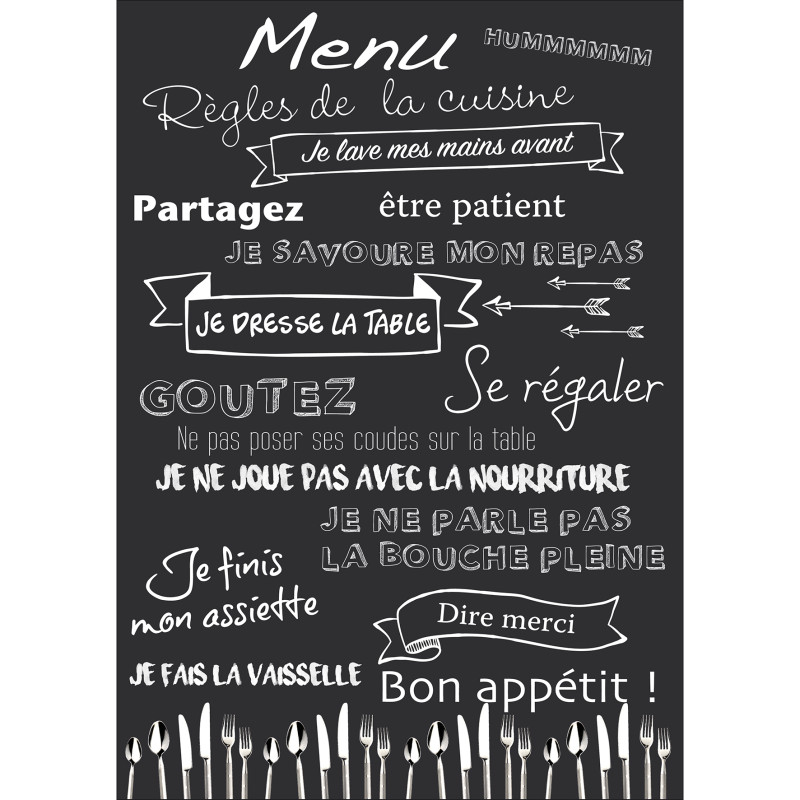 Menu
HUMMMMMMM
Règles de la cuisine
Je lave mes mains avant
Partagez
être patient
JE SAVOURE MON REPAS
JE DRESSE LA TABLE
GOUTEZ
Se régaler
Ne pas poser ses coudes sur la table
JE NE JOUE PAS AVEC LA NOURRITURE
JE NE PARLE PAS
LA BOUCHE PLEINE
Je finis
mon assiette
Dire merci
JE FAIS LA VAISSELLE
Bon appétit !